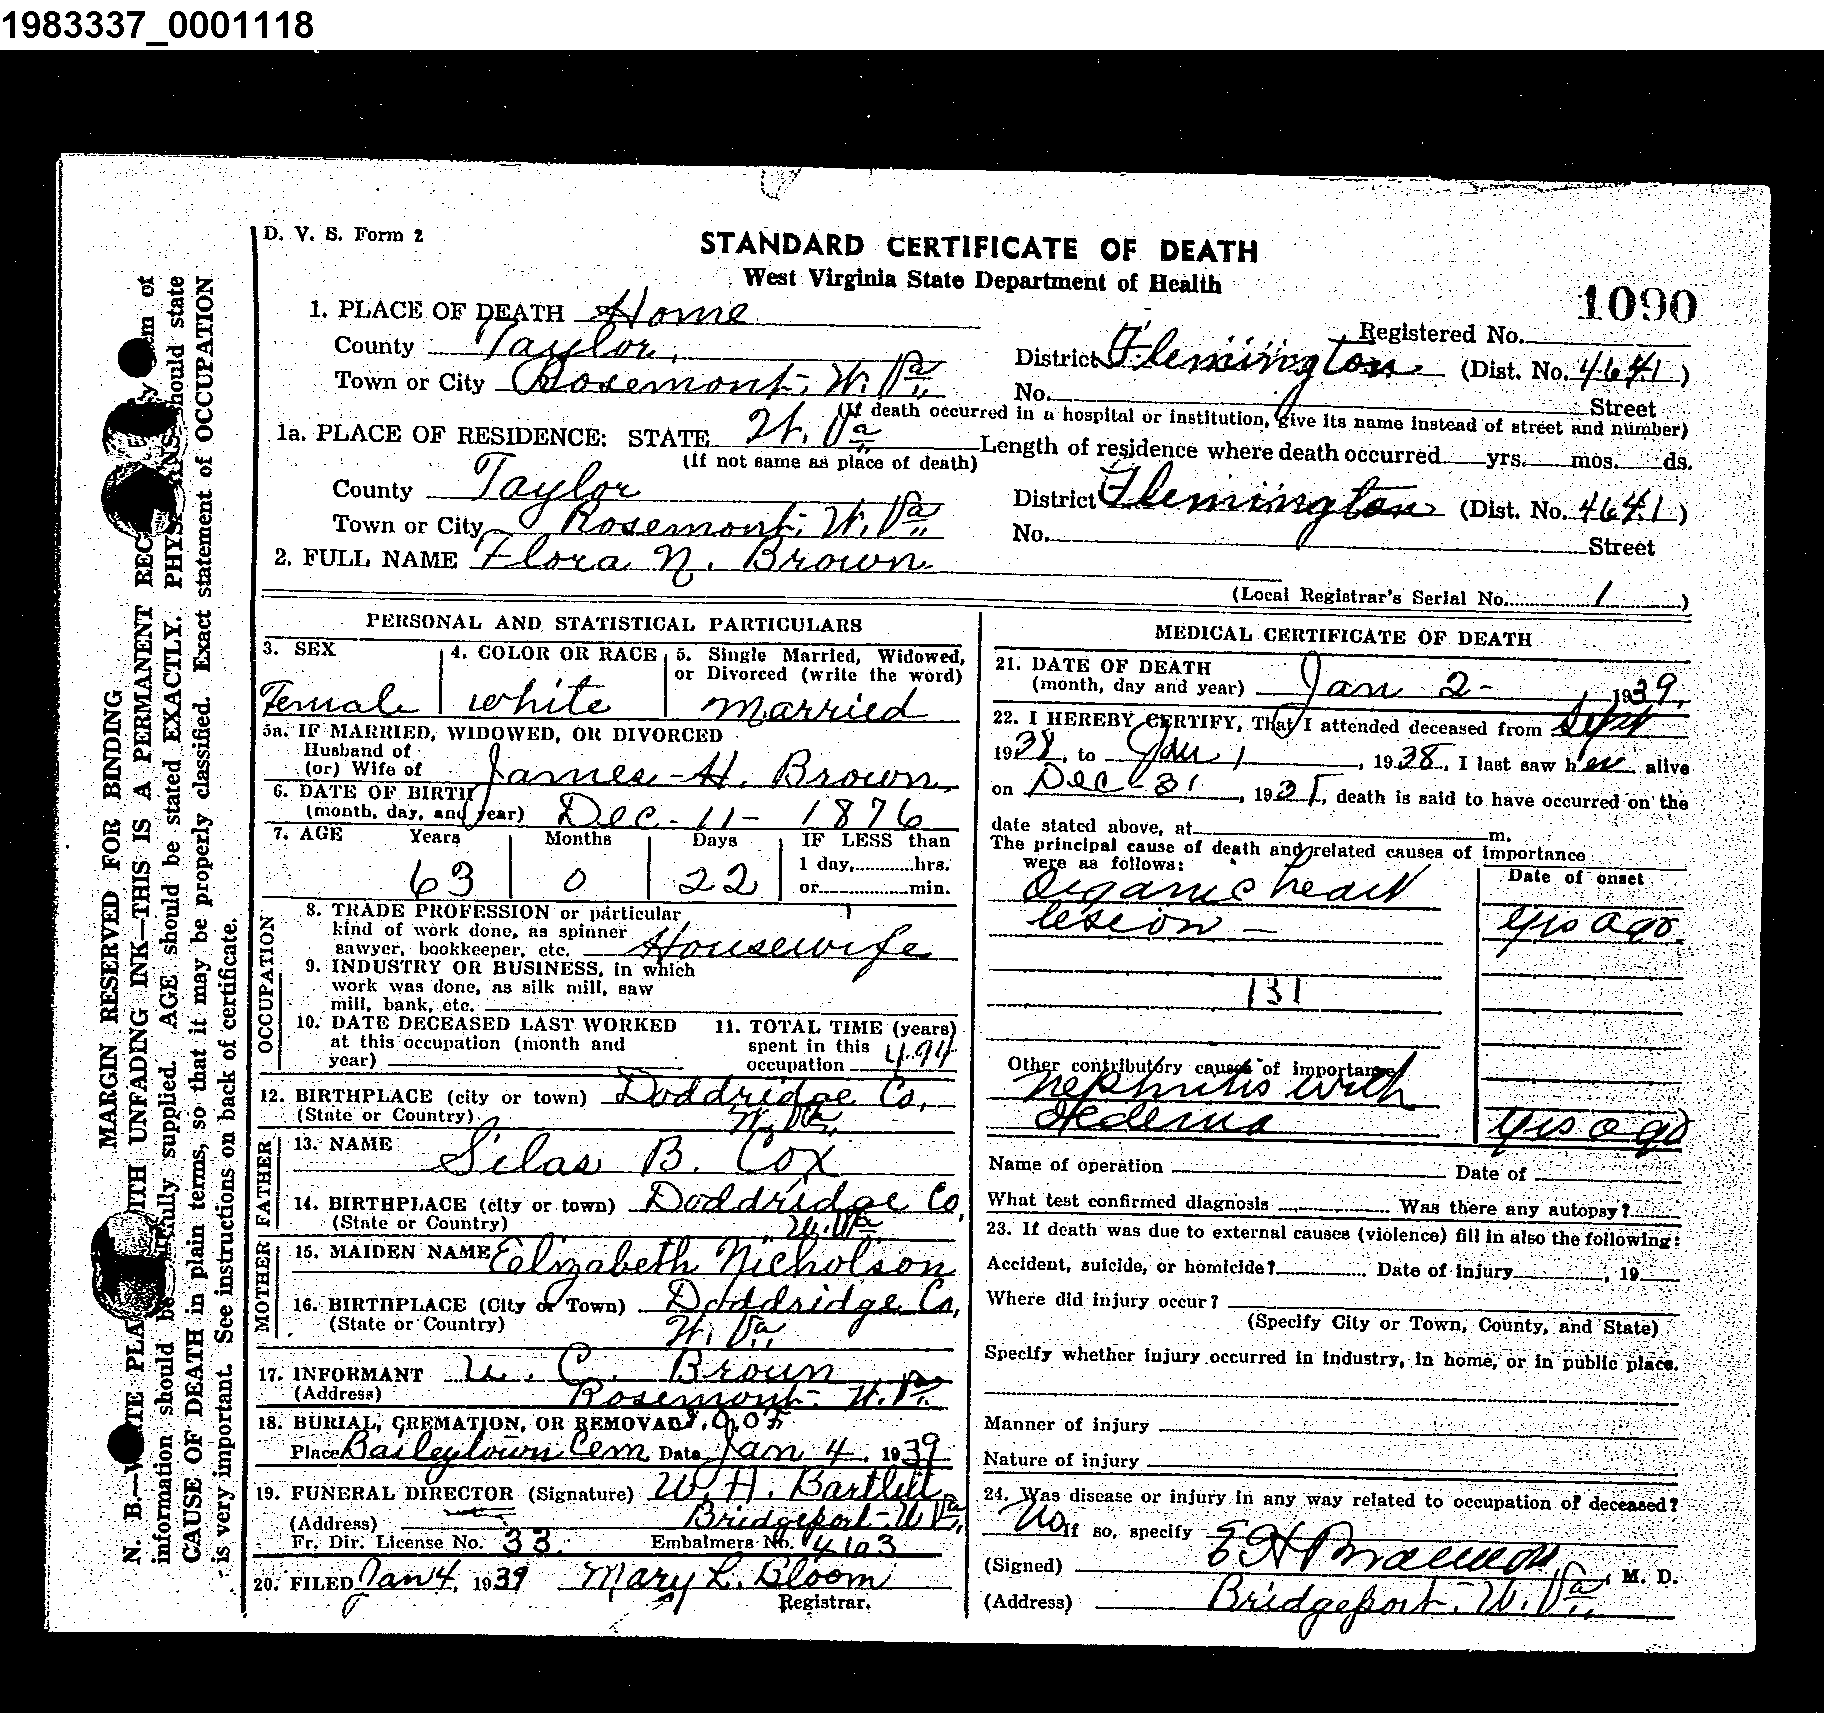 1983337_0001118
D. V. S. Form 2
STANDARD CERTIFICATE OF DEATH
West Virginia State Department of Health
1090
1. PLACE OF DEATH Home
Registered No.
County Taylor
District Flemington (Dist. No. 4641)
Town or City Rosemont, W. Va.
No. Street
(If death occurred in a hospital or institution, give its name instead of street and number)
1a. PLACE OF RESIDENCE: STATE W. Va.
(If not same as place of death)
Length of residence where death occurred yrs. mos. ds.
County Taylor
District Flemington (Dist. No. 4641)
Town or City Rosemont, W. Va.
No. Street
2. FULL NAME Flora N. Brown
(Local Registrar's Serial No. 1)
PERSONAL AND STATISTICAL PARTICULARS
3. SEX
Female
4. COLOR OR RACE
white
5. Single Married, Widowed,
or Divorced (write the word)
married
5a. IF MARRIED, WIDOWED, OR DIVORCED
Husband of
(or) Wife of James H. Brown
6. DATE OF BIRTH
(month, day, and year) Dec - 11 - 1876
7. AGE Years Months Days IF LESS than
63 0 22 1 day, hrs.
or min.
OCCUPATION
8. TRADE PROFESSION or particular
kind of work done, as spinner
sawyer, bookkeeper, etc. Housewife
9. INDUSTRY OR BUSINESS, in which
work was done, as silk mill, saw
mill, bank, etc.
10. DATE DECEASED LAST WORKED
at this occupation (month and
year)
11. TOTAL TIME (years)
spent in this
occupation
12. BIRTHPLACE (city or town) Doddridge Co.
(State or Country) W. Va.
FATHER
13. NAME Silas B. Cox
14. BIRTHPLACE (city or town) Doddridge Co.
(State or Country) W. Va.
MOTHER
15. MAIDEN NAME Elizabeth Nicholson
16. BIRTHPLACE (City or Town) Doddridge Co.
(State or Country) W. Va.
17. INFORMANT U. C. Brown
(Address) Rosemont - W. Va.
18. BURIAL, CREMATION, OR REMOVAL
Place Baileytown Cem Date Jan 4, 1939
19. FUNERAL DIRECTOR (Signature) W. A. Bartlett
(Address) Bridgeport - W Va.
Fr. Dir. License No. 33 Embalmers No. 4103
20. FILED Jan 4, 1939 Mary L. Bloom
Registrar.
MEDICAL CERTIFICATE OF DEATH
21. DATE OF DEATH
(month, day and year) Jan 2 - , 1939.
22. I HEREBY CERTIFY, That I attended deceased from Sept
1938, to Jan 1, 1938, I last saw her alive
on Dec - 31, 193 , death is said to have occurred on the
date stated above, at m.
The principal cause of death and related causes of importance
were as follows:
Date of onset
Organic heart
lesion - yrs ago
131
Other contributory causes of importance
Nephritis with
Oedema yrs ago
Name of operation Date of
What test confirmed diagnosis Was there any autopsy?
23. If death was due to external causes (violence) fill in also the following:
Accident, suicide, or homicide? Date of injury , 19
Where did injury occur?
(Specify City or Town, County, and State)
Specify whether injury occurred in industry, in home, or in public place.
Manner of injury
Nature of injury
24. Was disease or injury in any way related to occupation of deceased?
No If so, specify
(Signed) M. D.
(Address) Bridgeport - W. Va.
MARGIN RESERVED FOR BINDING
UNFADING INK—THIS IS A PERMANENT
information should be supplied. AGE should be stated EXACTLY. should state
CAUSE OF DEATH in plain terms, so that it may be properly classified. Exact statement of OCCUPATION
is very important. See instructions on back of certificate.